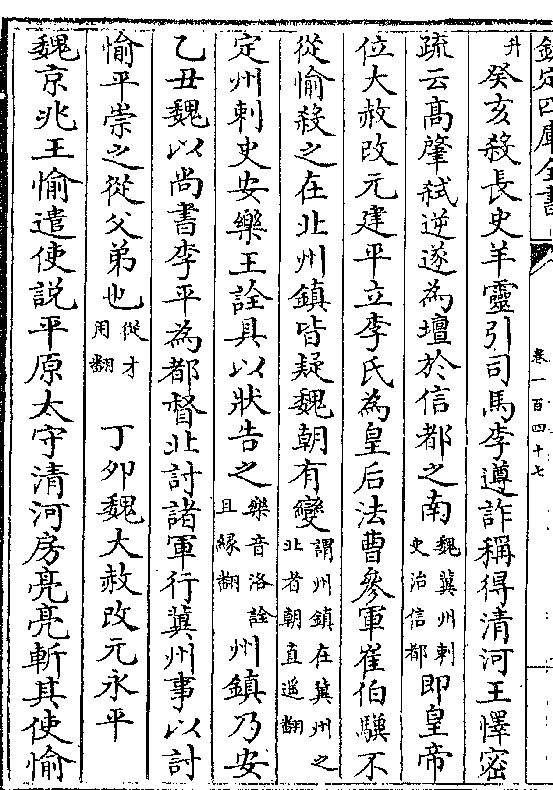 欽定四庫全書
卷一百四十七
升
癸亥殺長史羊靈引司馬李遵詐稱得清河王懌密
疏云高肇弑逆遂為壇於信都之南魏冀州刺史治信都即皇帝
位大赦改元建平立李氏為皇后法曹參軍崔伯驥不
從愉殺之在北州鎮皆疑魏朝有變謂州鎮在冀州之北者朝直遥翻
定州刺史安樂王詮具以狀告之樂音洛詮且緣翻州鎮乃安
乙丑魏以尚書李平為都督北討諸軍行冀州事以討
愉平崇之從父弟也從才用翻丁夘魏大赦改元永平
魏京兆王愉遣使説平原太守清河房亮亮斬其使愉